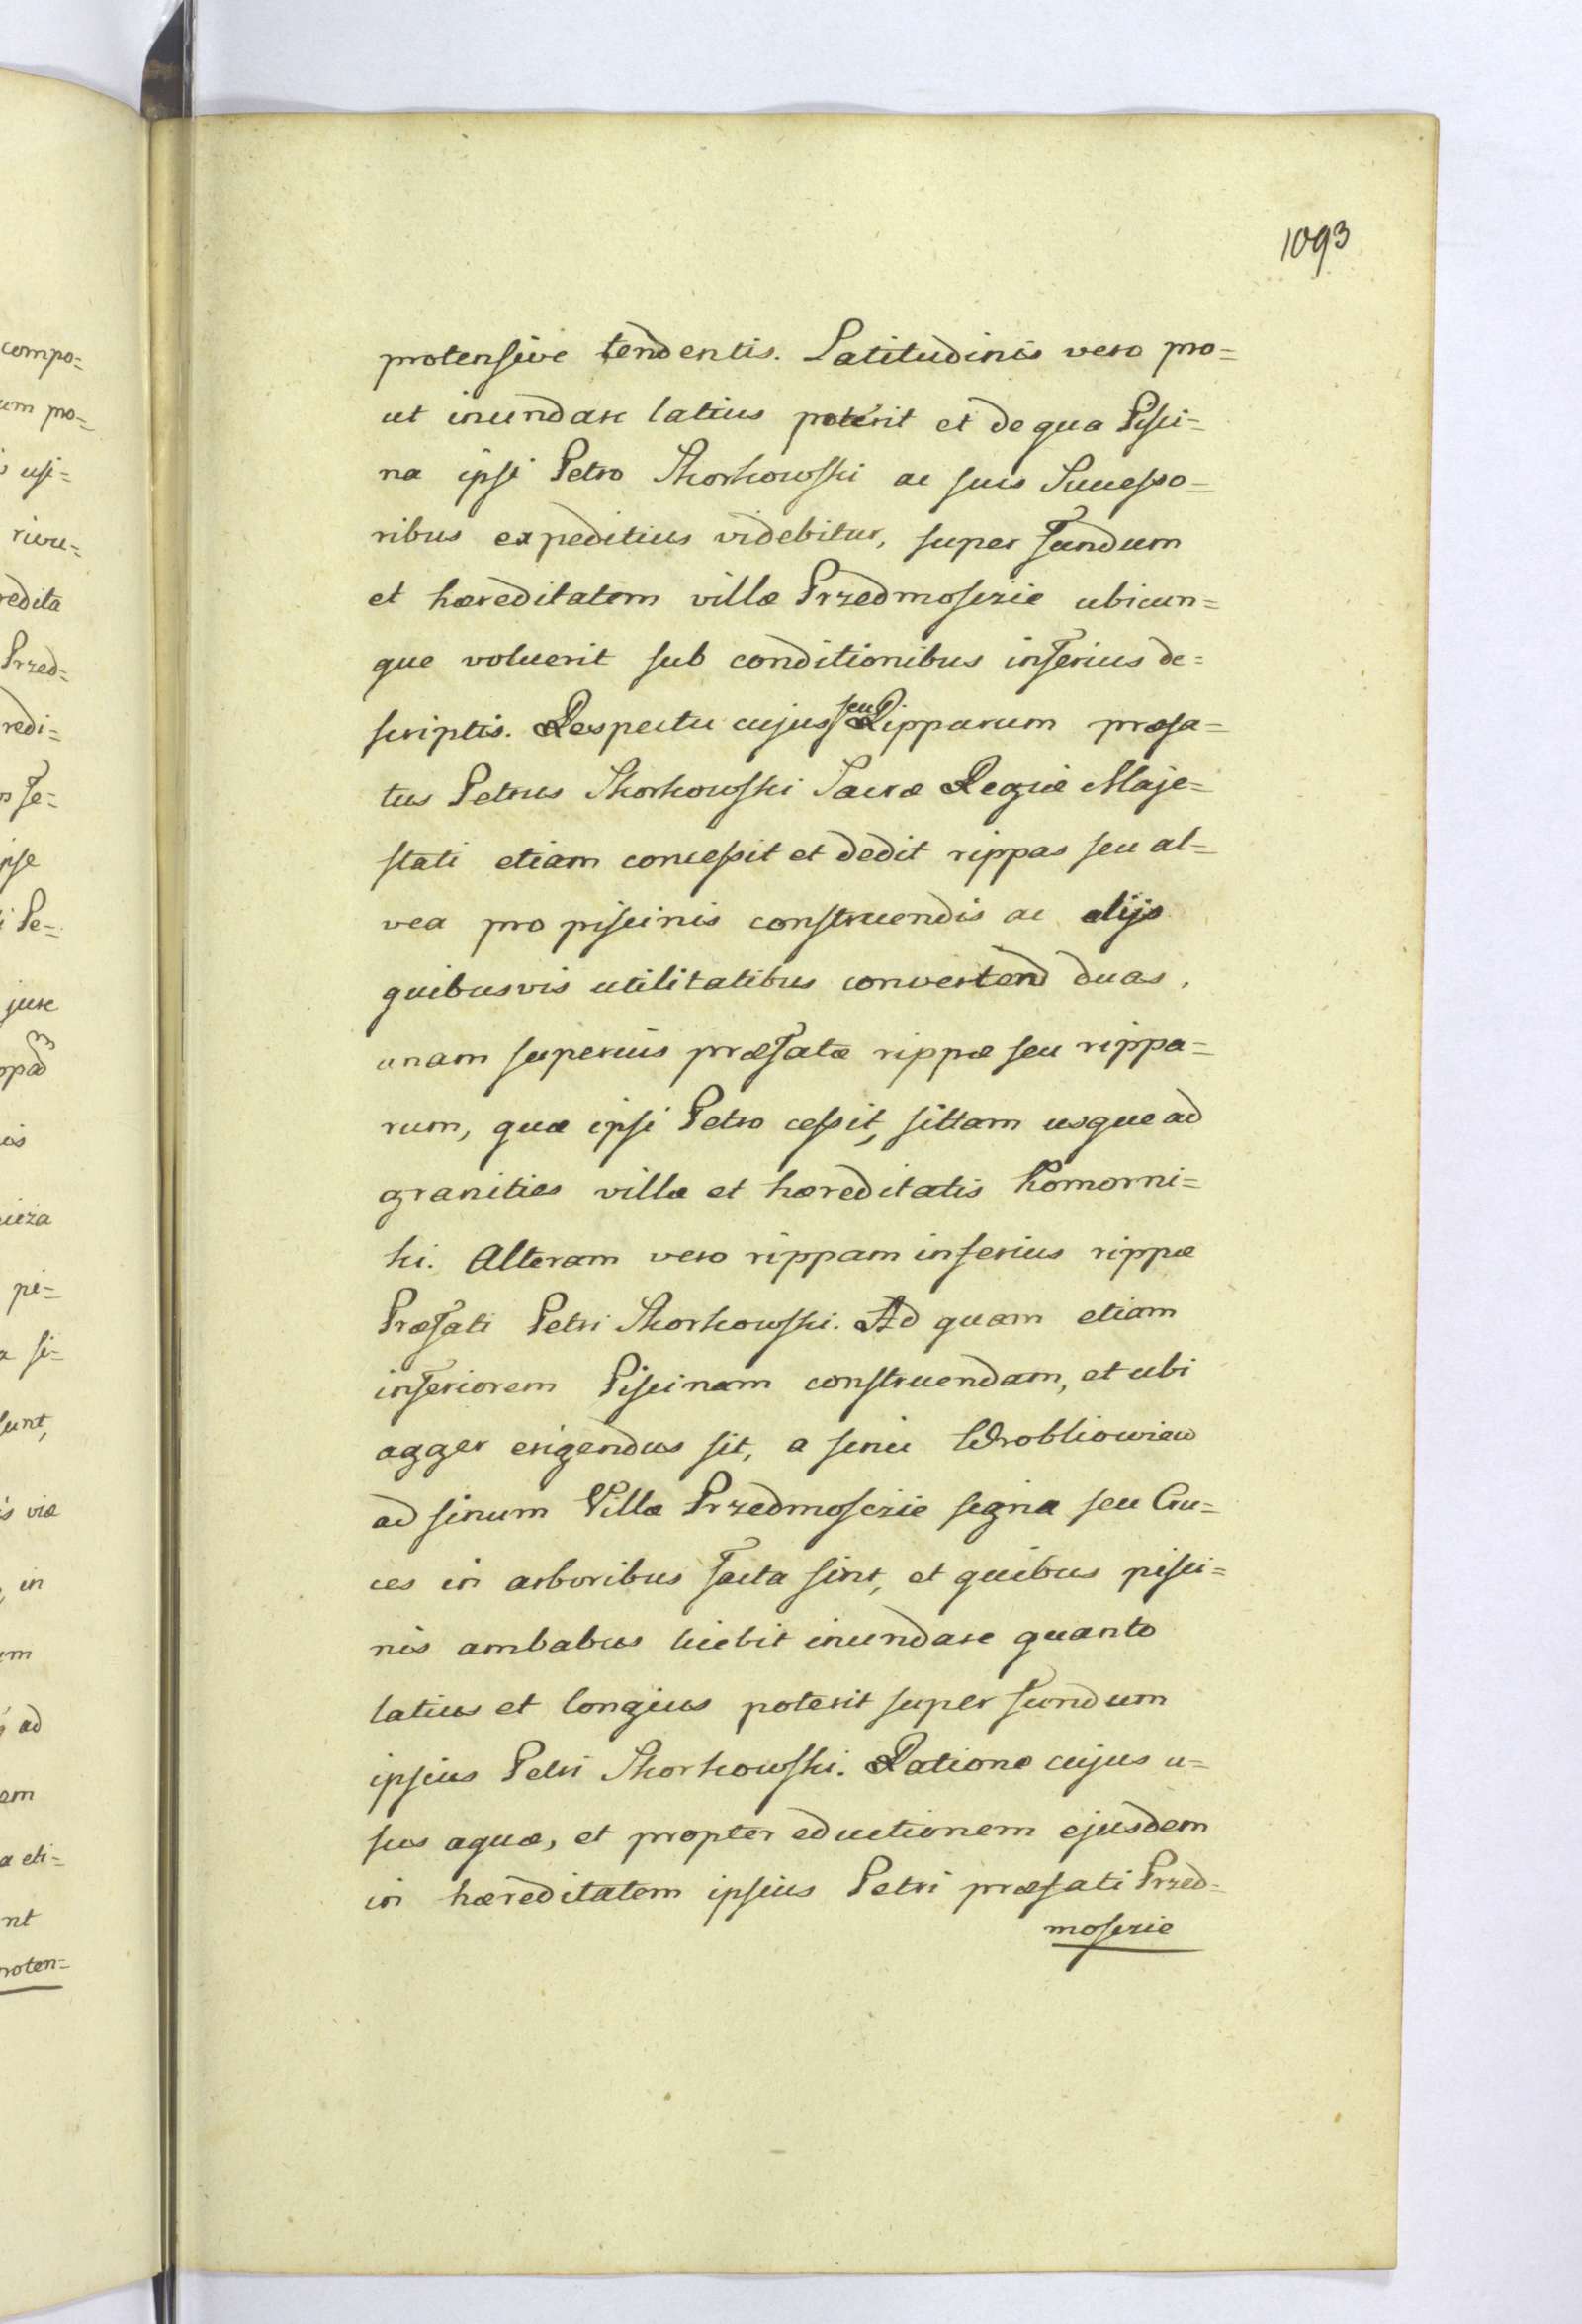 1093
protensive tendentis. Latitudinis vero pro=
ut inundare latius poterit et de qua Pisci=
na ipsi Petro Skorkowski ac suis Successo=
ribus expeditius videbitur, super fundum
et hæreditatem villæ Przedmoscie ubicun=
que voluerit sub conditionibus inferius de=
scriptis. Respectu cujus seu Ripparum præfa=
tus Petrus Skorkowski Sacræ Regiæ Maje=
stati etiam concessit et dedit rippas seu al=
vea pro piscinis construendis ac alijs
quibusvis utilitatibus convertend duas,
unam superius præfatæ rippæ seu rippa=
rum, quæ ipsi Petro cessit, sittam usque ad
granities villæ et hæreditatis Komorni=
ki. Alteram vero rippam inferius rippæ
Præfati Petri Skorkowski. Ad quam etiam
inferiorem Piscinam construendam, et ubi
agger erigendus sit, a sinu Wrobliowiew
ad sinum Villæ Przedmoscie signa seu Cru=
ces in arboribus facta sint, et quibus pisci=
nis ambabus licebit inundare quanto
latius et longius poterit super fundum
ipsius Petri Skorkowski. Ratione cujus u=
sus aquæ, et propter eductionem ejusdem
in hæreditatem ipsius Petri præfati Przed=
moscie
compo=
um po=
usi=
rivu=
redita
Przed=
redi=
fe=
ipse
Pe=
jure
pi=
si=
sunt,
viæ
in
ad
nt
roten=